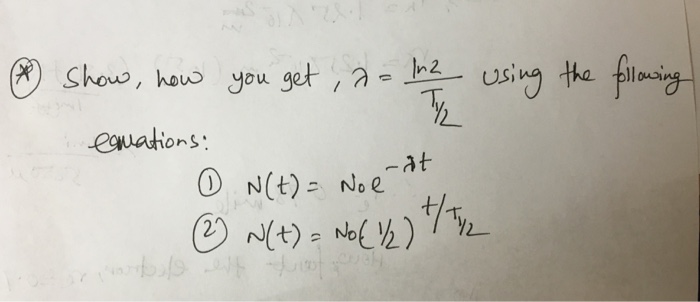 * Show, how you get, λ = ln2 / T1/2 using the following
equations:
① N(t) = N₀e^-λt
② N(t) = N₀(1/2)^t/T1/2